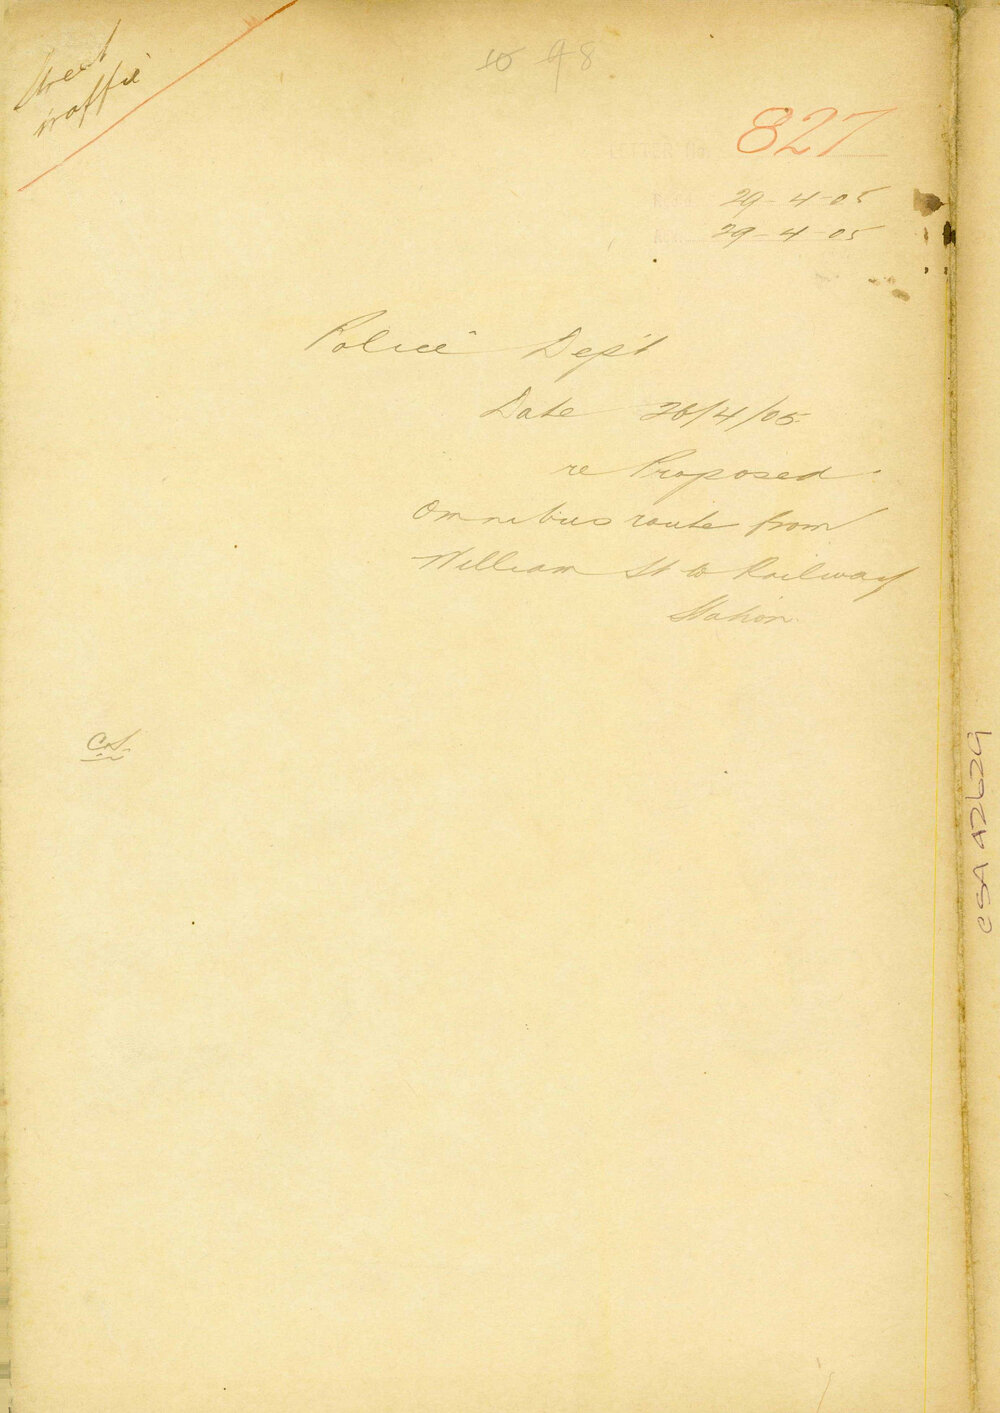 Street
traffic
98
827
29-4-05
29-4-05
Police Dep't
Date 28/4/05
re Proposed
Omnibus route from
William St to Railway
Station.
CSA A2629